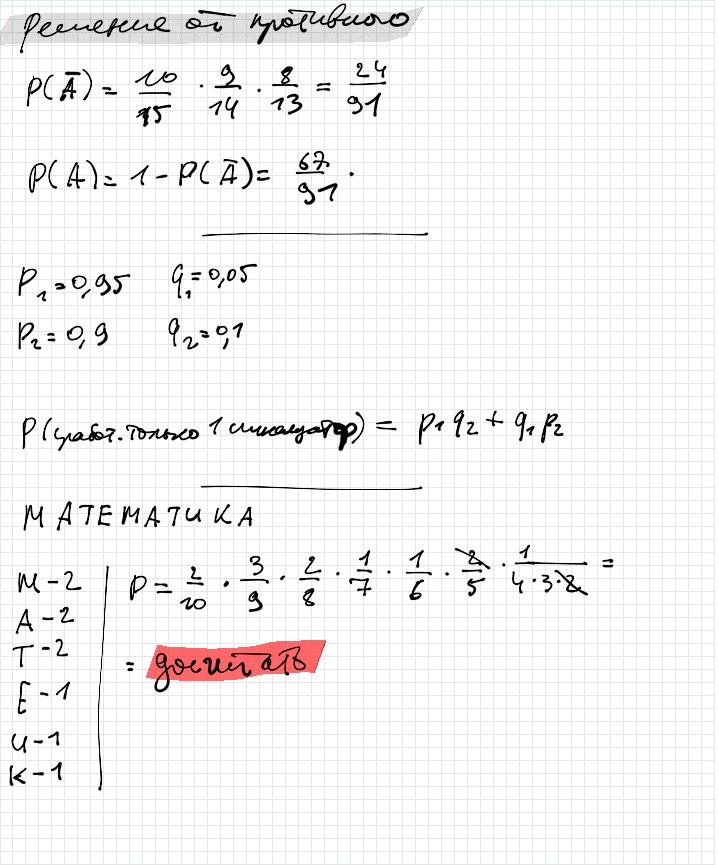 Решение от противного
P(Ā) = 10/15 · 9/14 · 8/13 = 24/91
P(A) = 1 - P(Ā) = 67/91.
P₁ = 0,95 q₁ = 0,05
P₂ = 0,9 q₂ = 0,1
P(сработ. только 1 сигнализатор) = p₁ q₂ + q₁ p₂
МАТЕМАТИКА
М - 2
А - 2
Т - 2
Е - 1
И - 1
К - 1
P = 2/10 · 3/9 · 2/8 · 1/7 · 1/6 · 2/5 · 1/(4·3·2) =
= досчитать